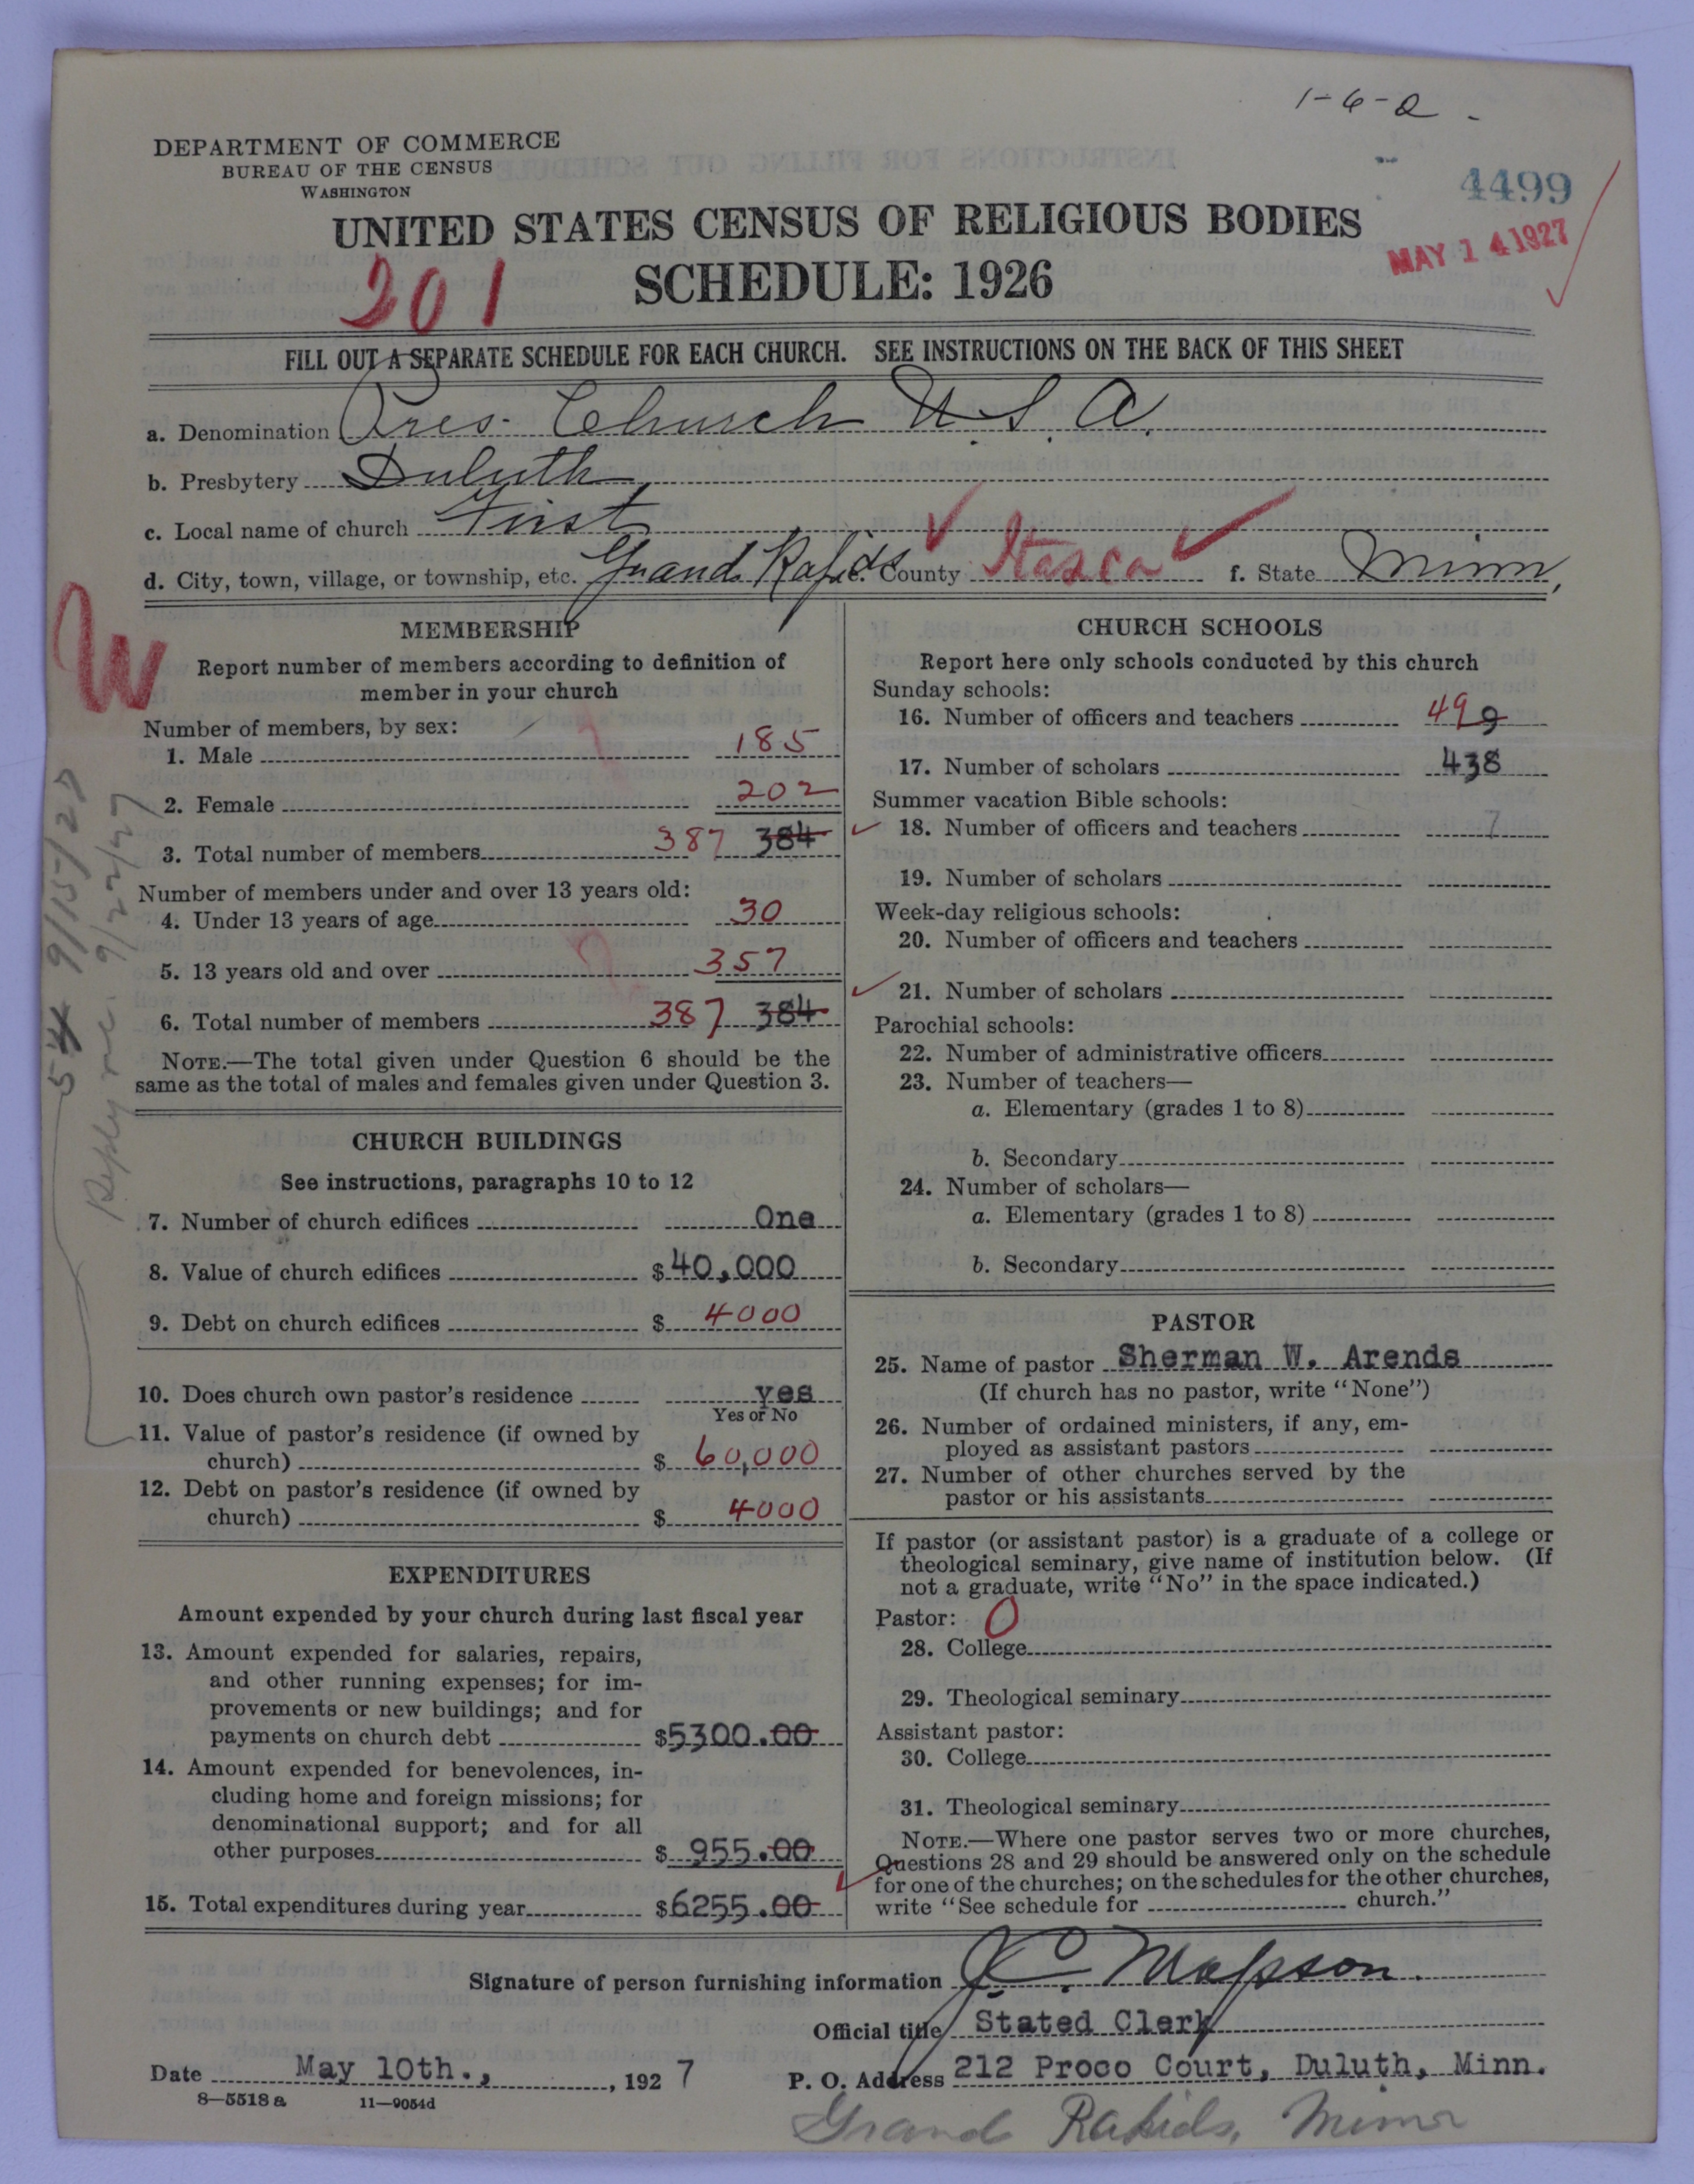 1-6-2
DEPARTMENT OF COMMERCE
BUREAU OF THE CENSUS
WASHINGTON
4499
UNITED STATES CENSUS OF RELIGIOUS BODIES
MAY 14 1927
201
SCHEDULE: 1926
FILL OUT A SEPARATE SCHEDULE FOR EACH CHURCH. SEE INSTRUCTIONS ON THE BACK OF THIS SHEET
a. Denomination Pres. Church U.S.A.
b. Presbytery Duluth
c. Local name of church First
d. City, town, village, or township, etc. Grand Rapids e. County Itasca f. State Minn,
W
MEMBERSHIP
Report number of members according to definition of
member in your church
Number of members, by sex:
1. Male 185
2. Female 202
3. Total number of members 387 384
Number of members under and over 13 years old:
4. Under 13 years of age 30
5. 13 years old and over 357
6. Total number of members 387 384
NOTE.—The total given under Question 6 should be the
same as the total of males and females given under Question 3.
54 9/15/27
Reply rec. 9/22/27
CHURCH BUILDINGS
See instructions, paragraphs 10 to 12
7. Number of church edifices One
8. Value of church edifices $ 40,000
9. Debt on church edifices $ 4000
10. Does church own pastor's residence yes
Yes or No
11. Value of pastor's residence (if owned by
church) $ 60,000
12. Debt on pastor's residence (if owned by
church) $ 4000
EXPENDITURES
Amount expended by your church during last fiscal year
13. Amount expended for salaries, repairs,
and other running expenses; for im-
provements or new buildings; and for
payments on church debt $5300.00
14. Amount expended for benevolences, in-
cluding home and foreign missions; for
denominational support; and for all
other purposes $ 955.00
15. Total expenditures during year $6255.00
CHURCH SCHOOLS
Report here only schools conducted by this church
Sunday schools:
16. Number of officers and teachers 49
17. Number of scholars 438
Summer vacation Bible schools:
18. Number of officers and teachers 7
19. Number of scholars
Week-day religious schools:
20. Number of officers and teachers
21. Number of scholars
Parochial schools:
22. Number of administrative officers
23. Number of teachers—
a. Elementary (grades 1 to 8)
b. Secondary
24. Number of scholars—
a. Elementary (grades 1 to 8)
b. Secondary
PASTOR
25. Name of pastor Sherman W. Arends
(If church has no pastor, write "None")
26. Number of ordained ministers, if any, em-
ployed as assistant pastors
27. Number of other churches served by the
pastor or his assistants
If pastor (or assistant pastor) is a graduate of a college or
theological seminary, give name of institution below. (If
not a graduate, write "No" in the space indicated.)
Pastor: 0
28. College
29. Theological seminary
Assistant pastor:
30. College
31. Theological seminary
NOTE.—Where one pastor serves two or more churches,
Questions 28 and 29 should be answered only on the schedule
for one of the churches; on the schedules for the other churches,
write "See schedule for church."
Signature of person furnishing information J. C. Mapson.
Official title Stated Clerk
Date May 10th., , 1927 P. O. Address 212 Proco Court, Duluth, Minn.
8—5518 a 11—9054d
Grand Rapids, Minn